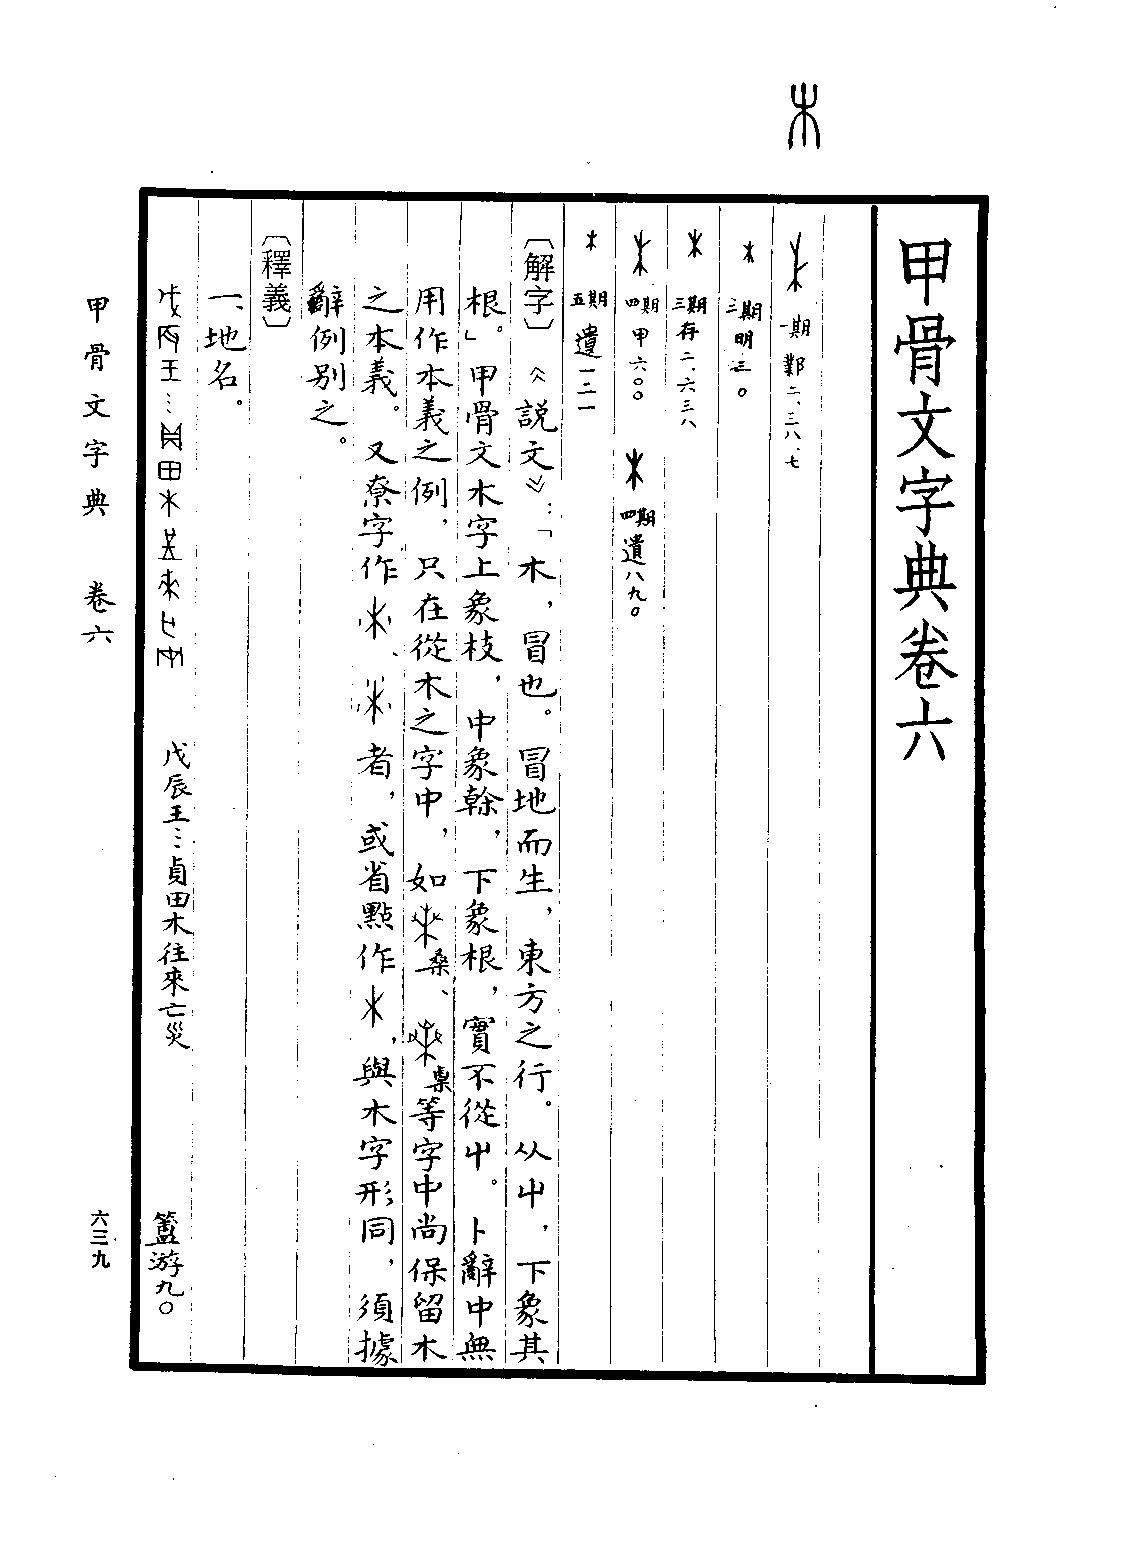 木
甲骨文字典卷六
一期 鄴二、三八、七
三期 明三〇
三期 存二、六三八
四期 甲六〇〇 四期 遺八九〇
五期 遺一二一
〔解字〕《説文》：「木，冒也。冒地而生，東方之行。从屮，下象其
根。」甲骨文木字上象枝，中象榦，下象根，實不從屮。卜辭中無
用作本義之例，只在從木之字中，如桑、等字中尚保留木
之本義。又尞字作、者，或省點作，與木字形同，須據
辭例別之。
〔釋義〕
一、地名。
戊辰王…貞田木往來亡災 簠游九〇
甲骨文字典 卷六
六三九